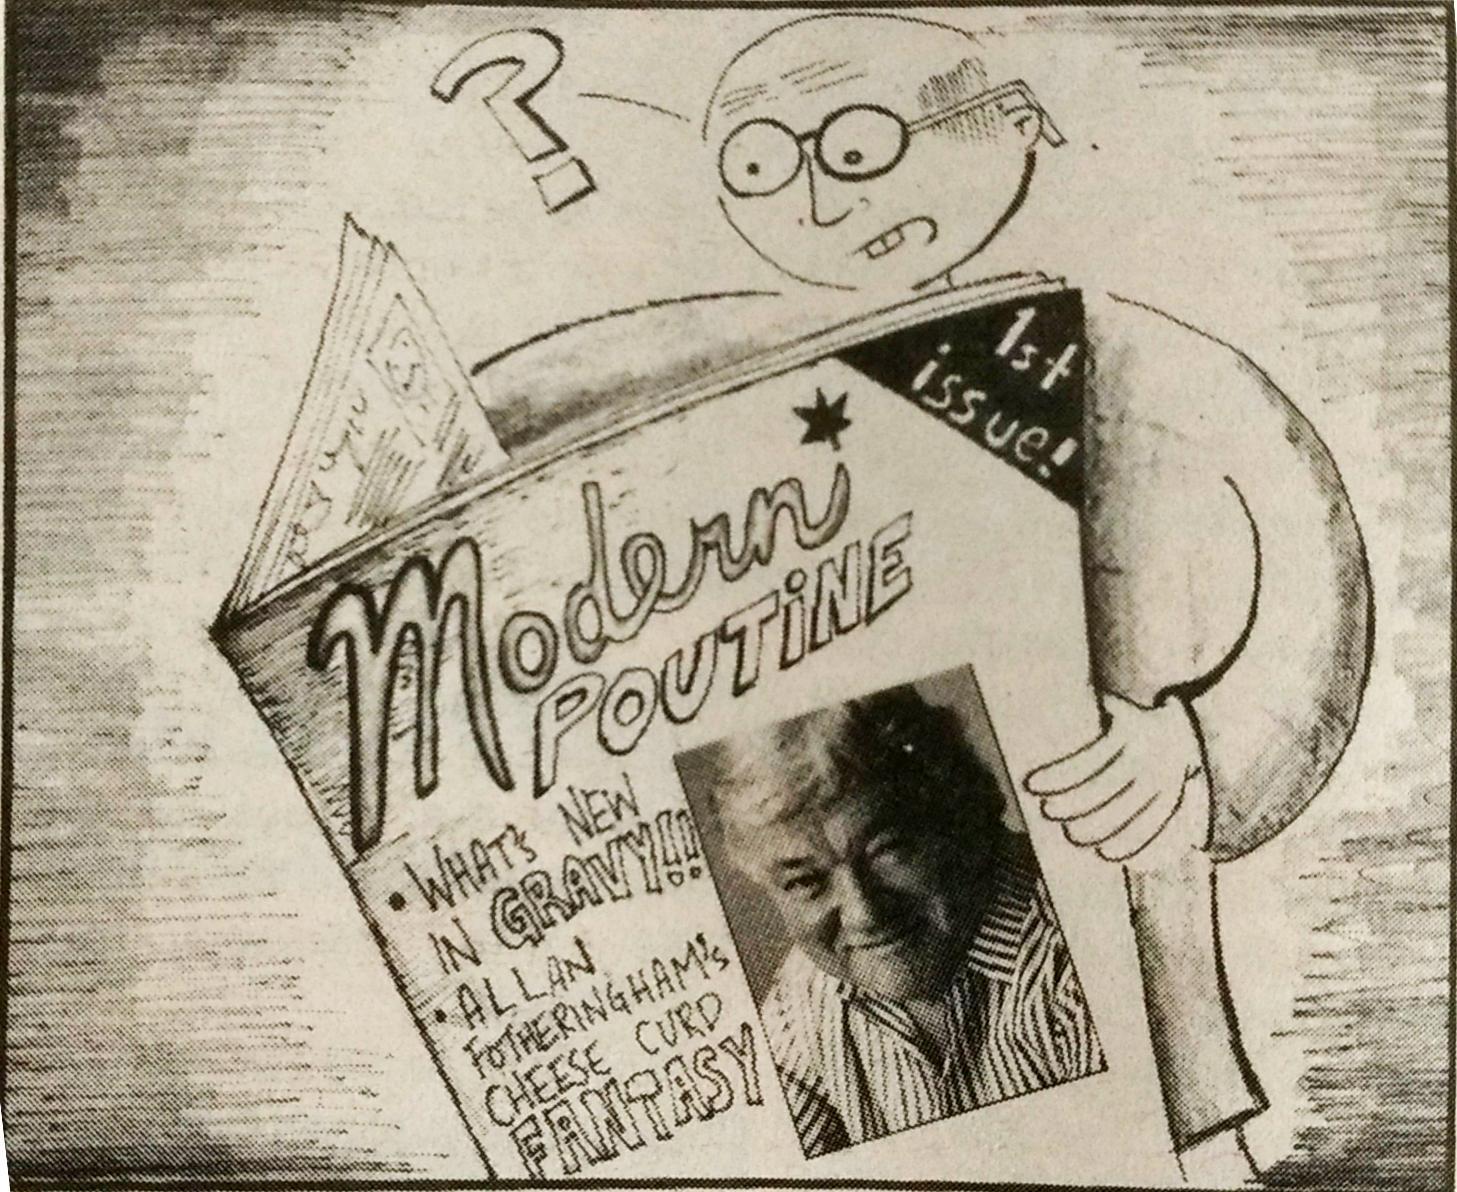 ?
1st
issue!
Modern
POUTiNE
• WHAT'S NEW
IN GRAVY!!
• ALLAN
FOTHERINGHAM'S
CHEESE CURD
FANTASY